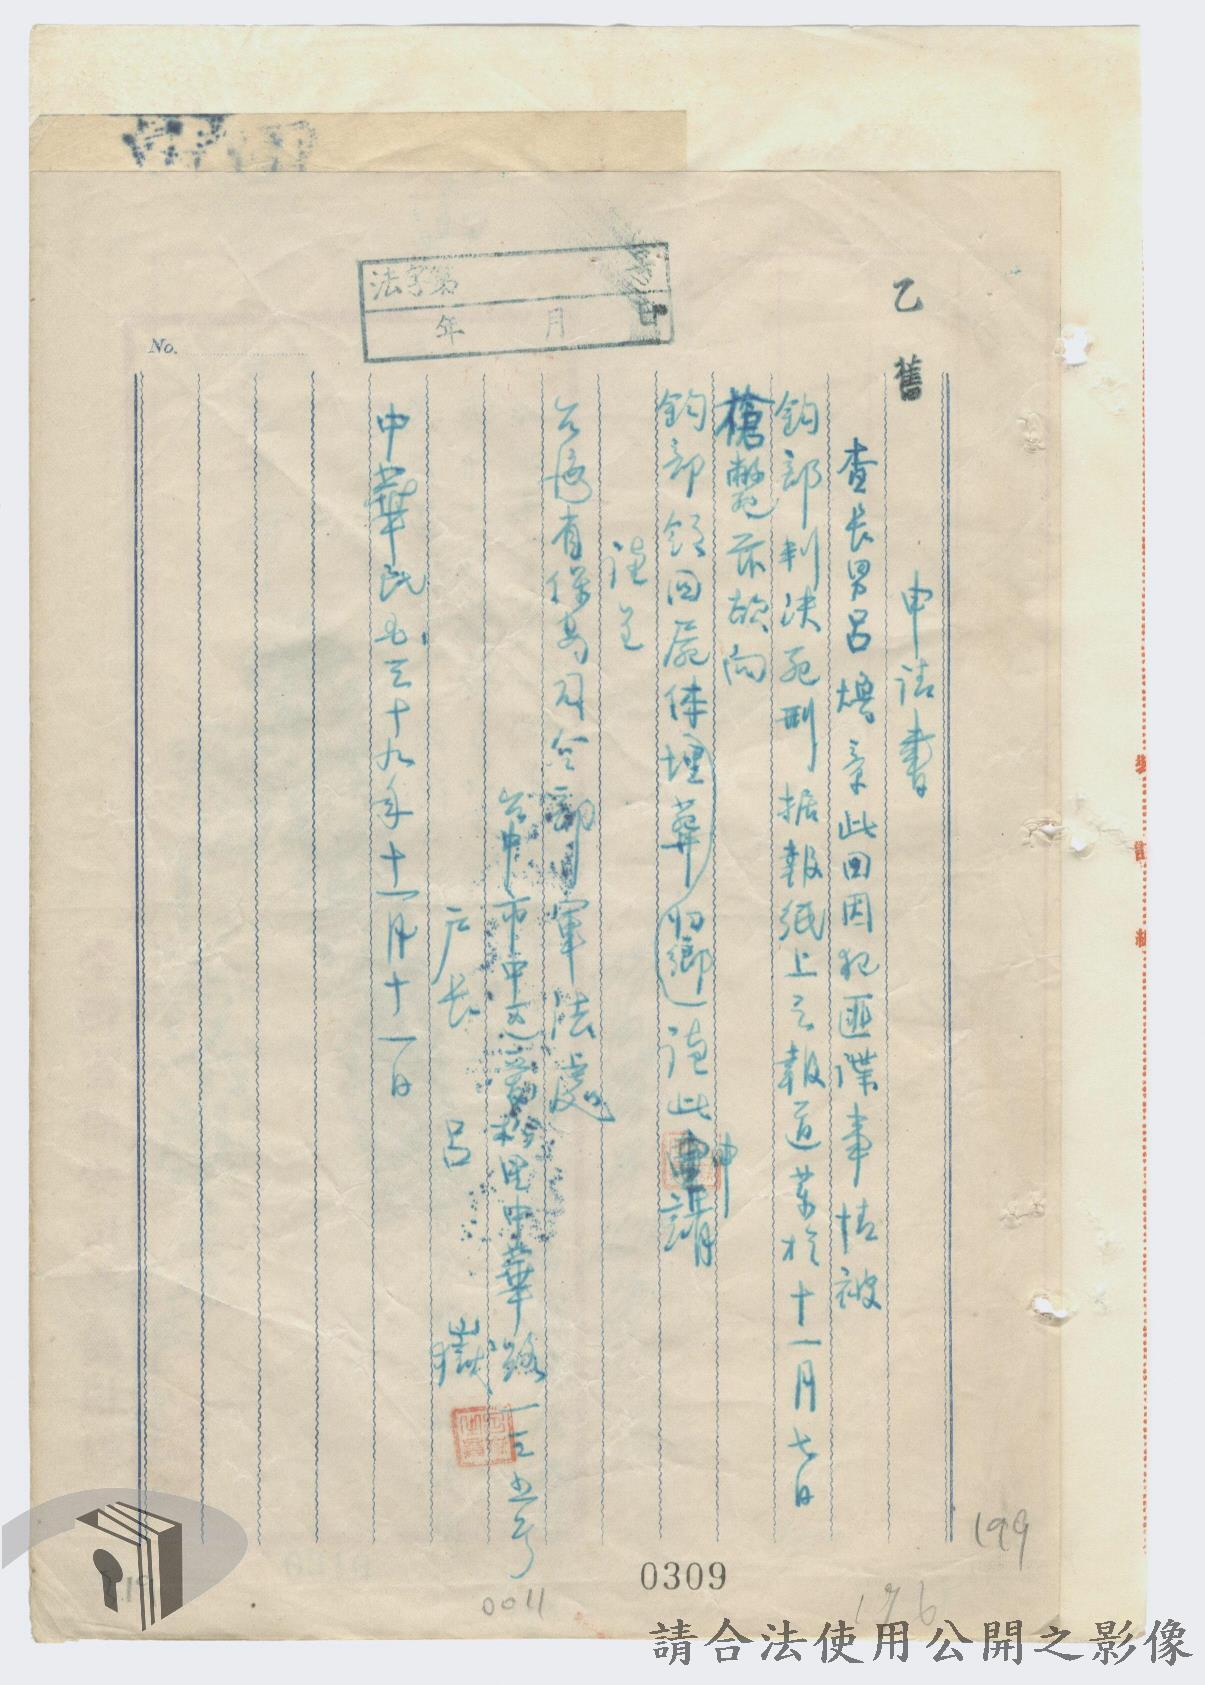 乙 舊
法字第 號
年 月 日
No.
申請書
查長男呂煥章此回因犯匪諜事情被
鈞部判決死刑据報紙上之報道業於十一月七日
槍斃茲故向
鈞部領回屍体埋葬归鄉謹此申請
謹呈
台湾省保安司令部軍法處
台中市中区 里中華路一三五号
戶長 呂嶽
中華民国三十九年十一月十一日
0309
0011
199
176
請合法使用公開之影像